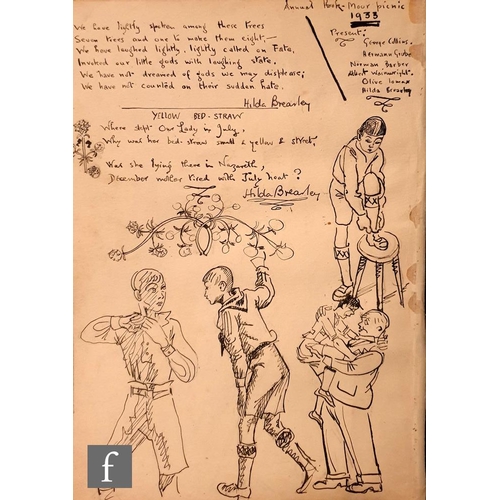 We have lightly spoken among these trees
Seven trees and one to make them eight,—
We have laughed lightly, lightly called on Fate,
Invited our little gods with laughing state.
We have not dreamed of gods we may displease;
We have not counted on their sudden hate.
Hilda Brearley
YELLOW BED-STRAW
Where slept Our Lady in July,
Why was her bed-straw small & yellow & sweet,
Was she lying there in Nazareth,
December mother tired with July heat?
Hilda Brearley
Annual Moor picnic
1933
Present:
George Collins.
Hermann
Norman Barber
Albert Wainwright.
Olive Lomax
Hilda Brearley
f